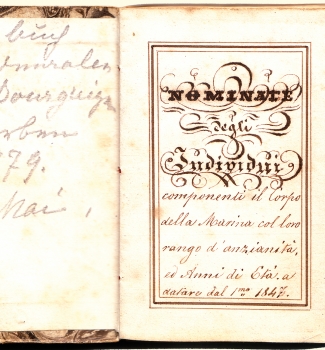 buch
Bourguign
erben
79.
Mai,
NOMINATE
degli
Individui
componenti il Corpo
della Marina col loro
rango d'anzianità,
ed Anni di Età. a
datare dal 1.mo 1847.